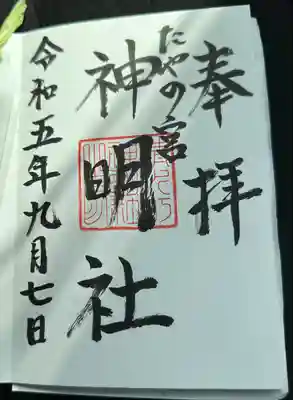 奉拝
たやの宮
神明社
令和五年九月七日